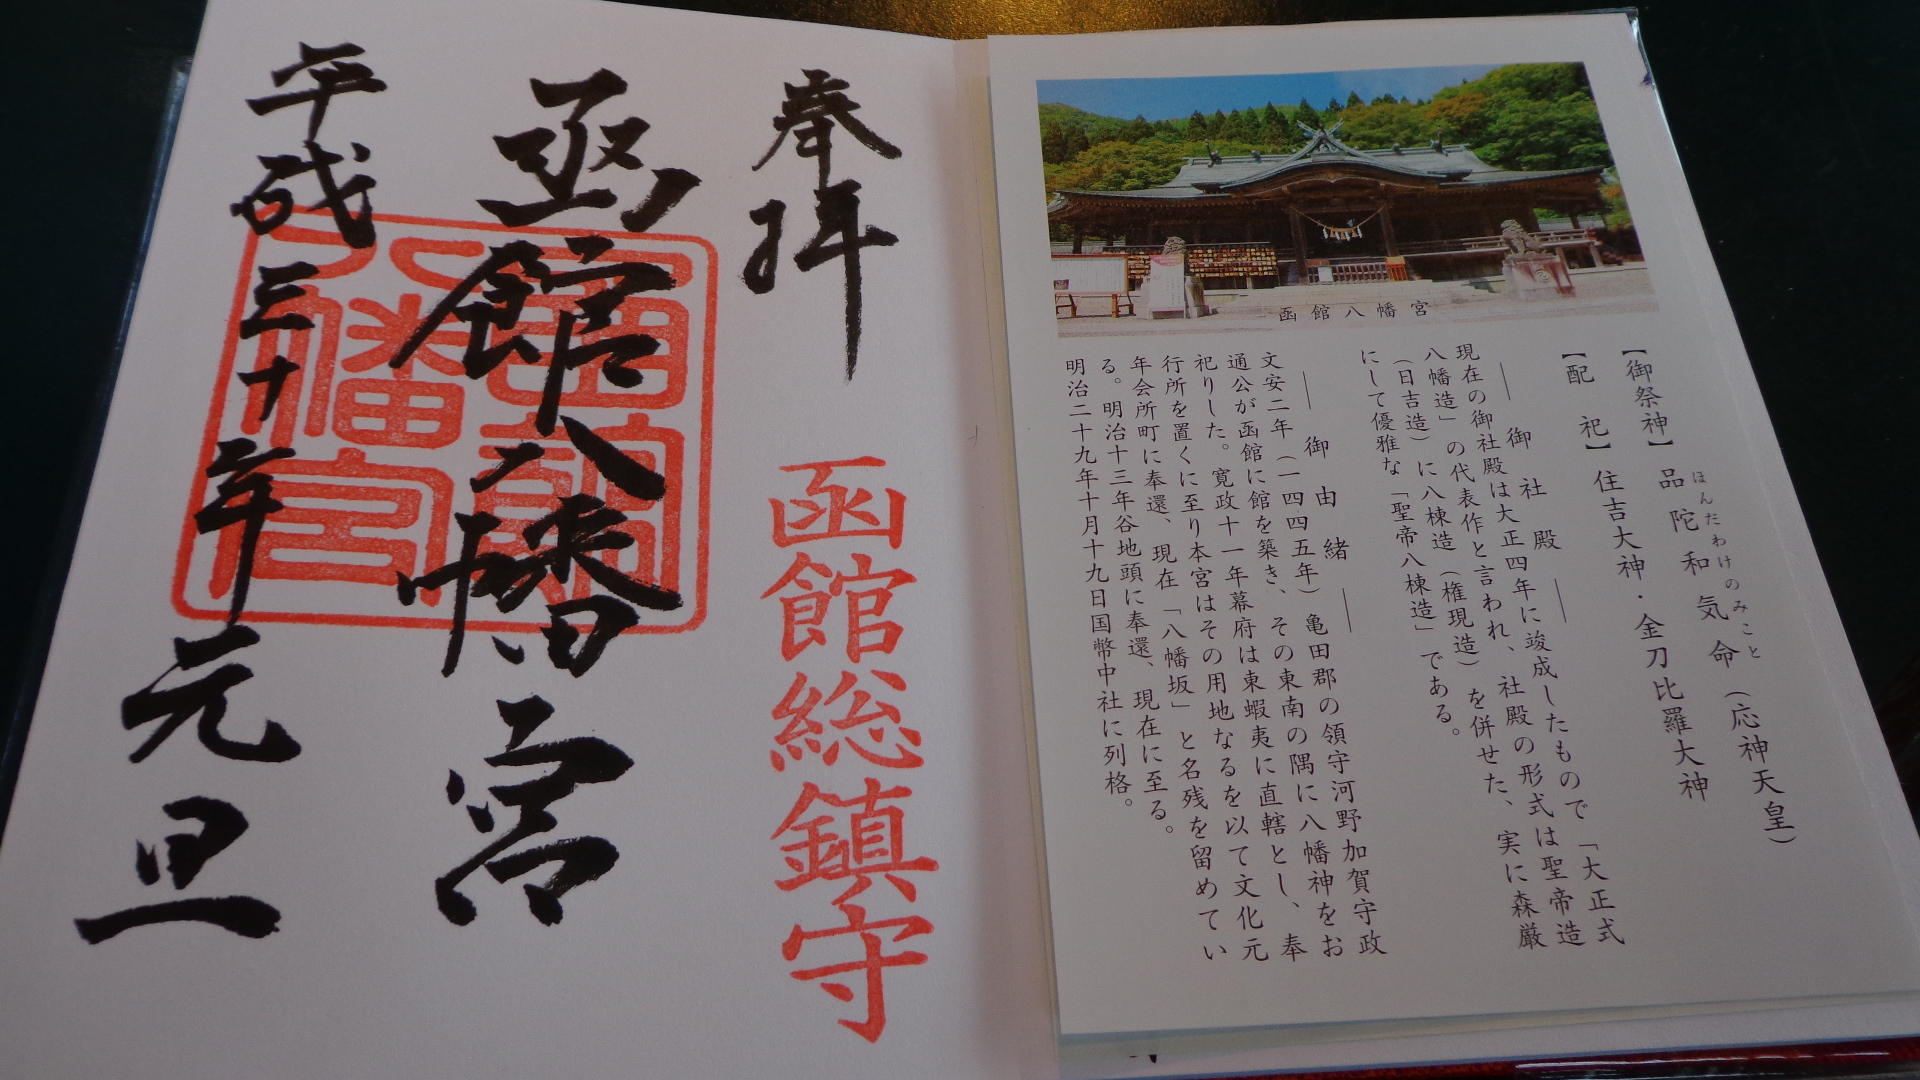 函館八幡宮
【御祭神】 品陀和気命（応神天皇）
ほんだわけのみこと
【配　祀】 住吉大神・金刀比羅大神
―― 御社殿 ――
現在の御社殿は大正四年に竣成したもので「大正式
八幡造」の代表作と言われ、社殿の形式は聖帝造
（日吉造）に八棟造（権現造）を併せた、実に森厳
にして優雅な「聖帝八棟造」である。
―― 御由緒 ――
文安二年（一四四五年）亀田郡の領守河野加賀守政
通公が函館に館を築き、その東南の隅に八幡神をお
祀りした。寛政十一年幕府は東蝦夷に直轄とし、奉
行所を置くに至り本宮はその用地なるを以て文化元
年会所町に奉還、現在「八幡坂」と名残を留めてい
る。明治十三年谷地頭に奉還、現在に至る。
明治二十九年十月十九日国幣中社に列格。
奉拝
函館総鎮守
函館八幡宮
函館八幡宮
平成三十年元旦